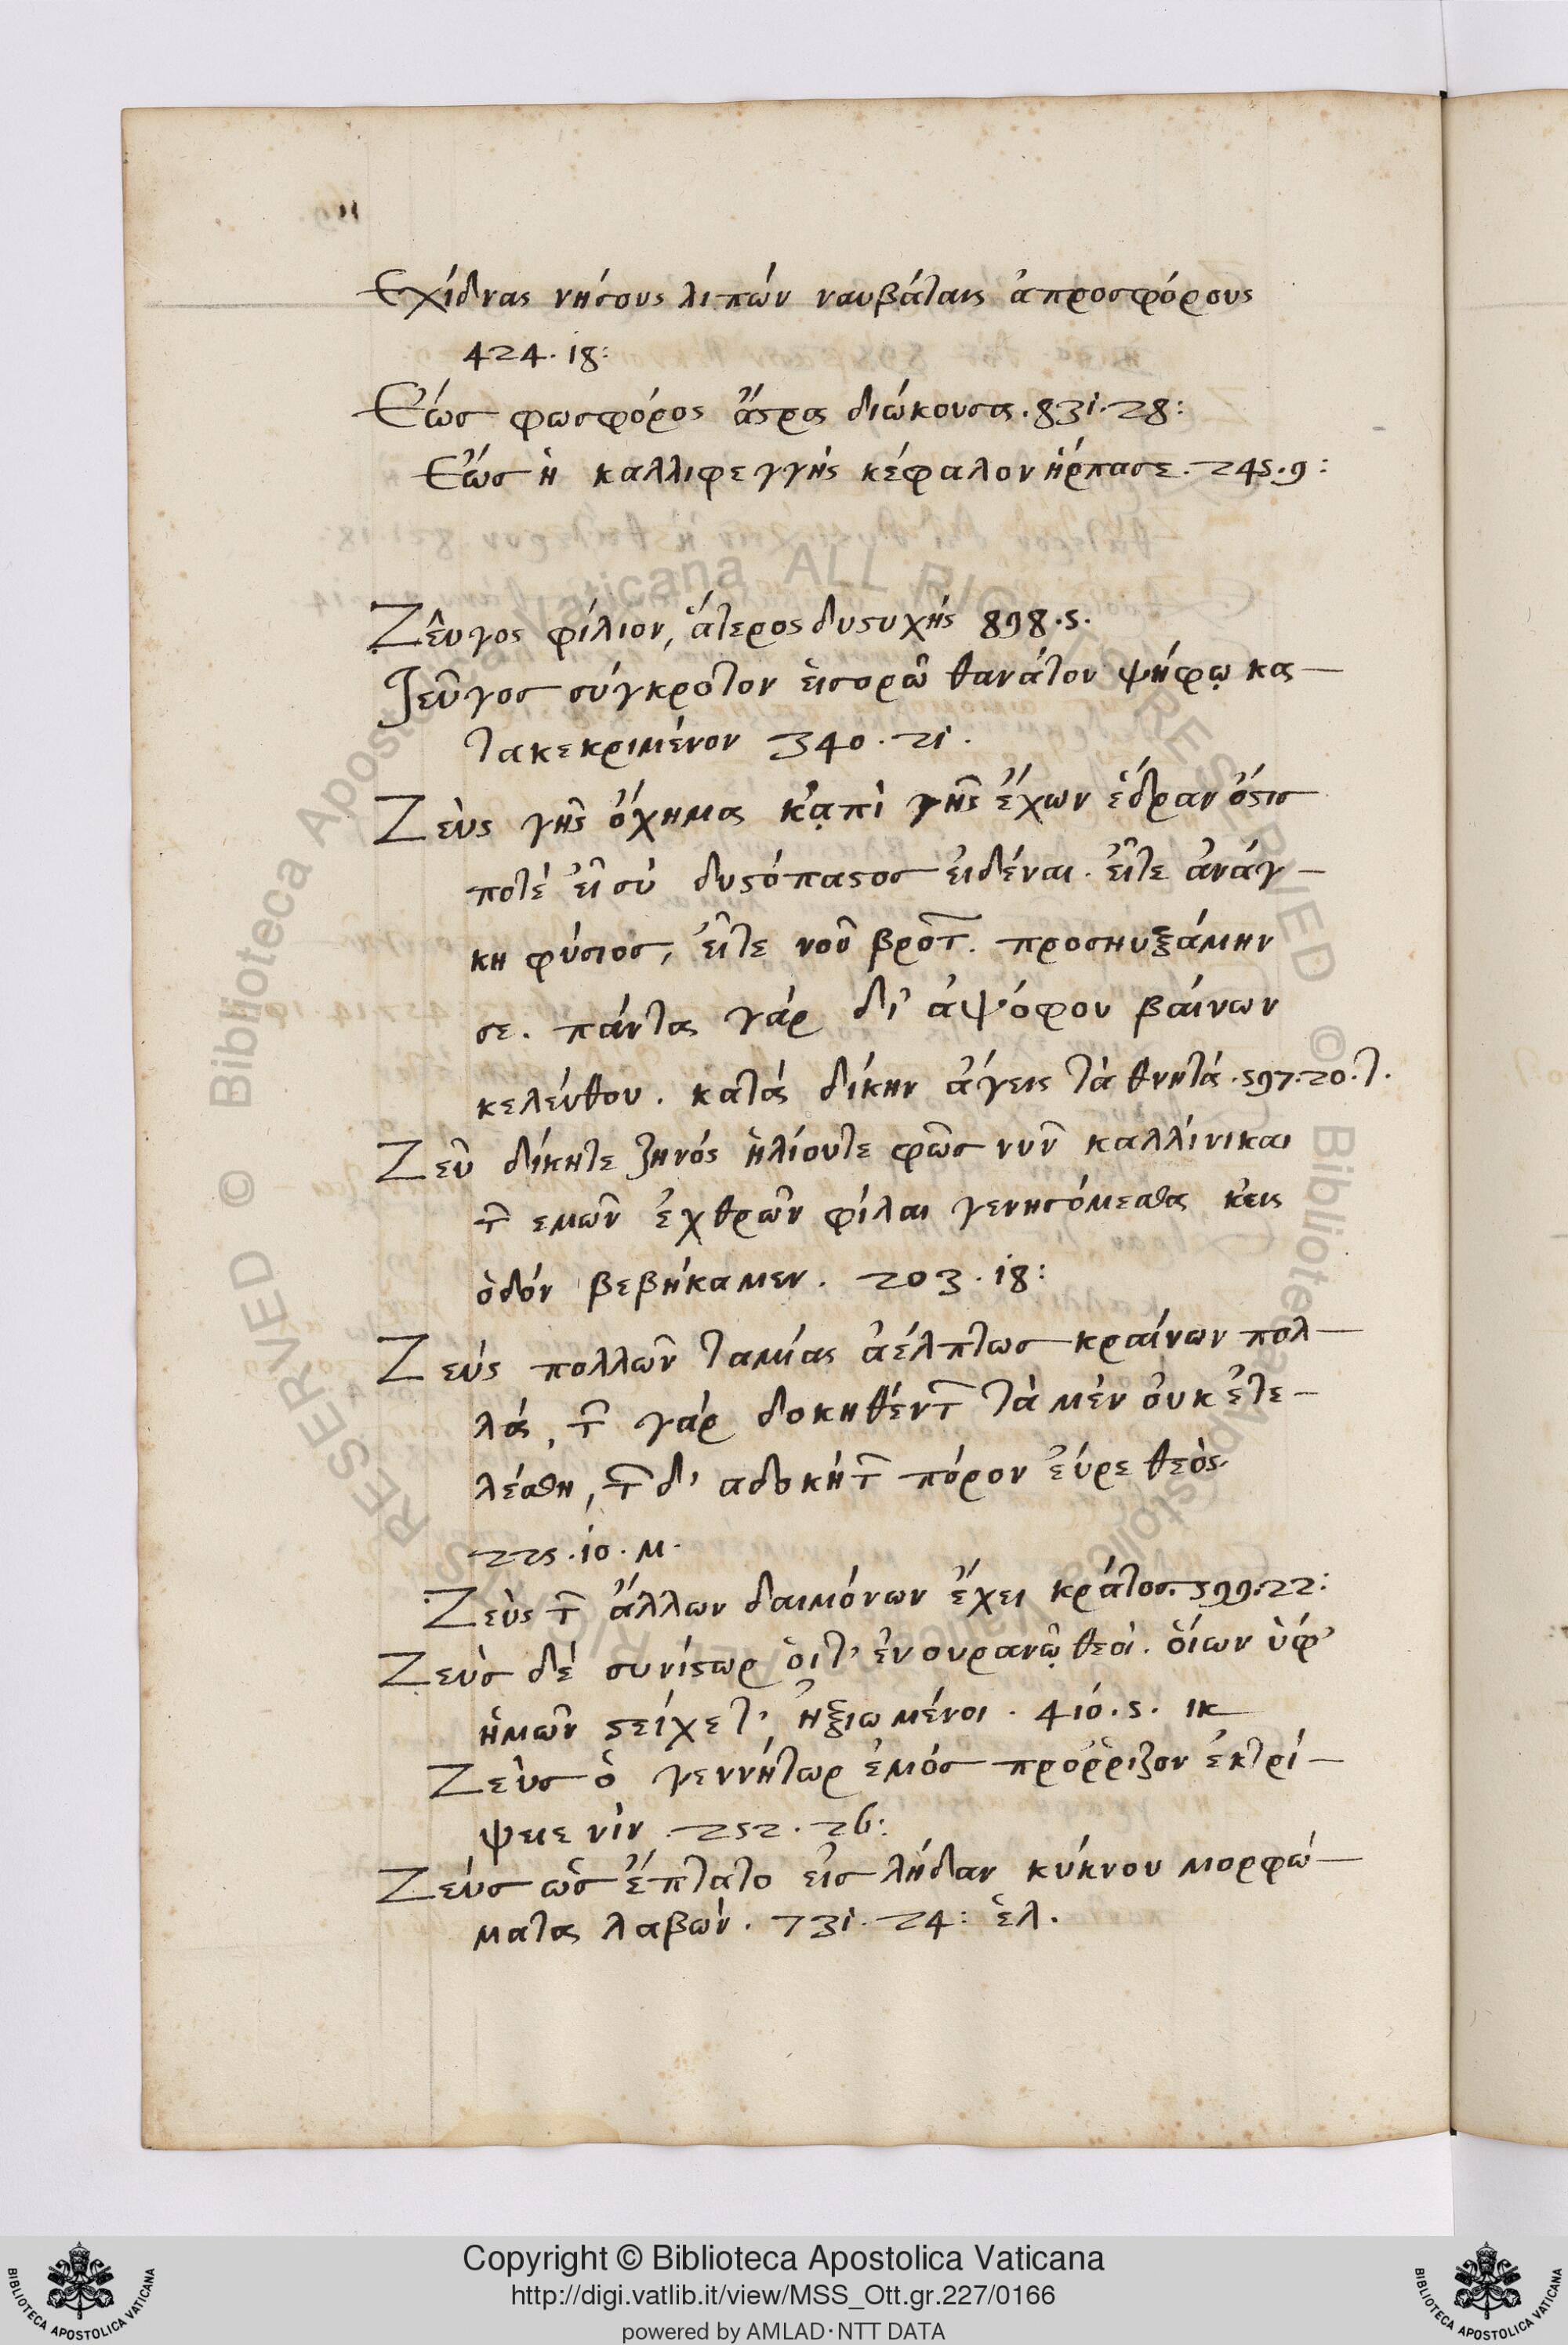 Ἐχίδνας νήσους λιπών ναυβάταις ἀπροσφόρους
424. 18:
Ἑώσ φωσφόρος ἄςρα διώκουσα. 831. 28:
Ἑώσ ἡ καλλιφεγγής κέφαλον ἥρπασε. 245. 9:
Ζεῦγος φίλιον, ἅτερος δυςυχής 898. 5.
Ζεῦγοσ σύγκροτον εἰσορῶ θανάτου ψήφῳ κα-
τακεκριμένον 340. 21.
Ζεὺς γῆς ὄχημα κᾀπὶ γῆς ἔχων ἕδραν ὅςισ
ποτέ εἶ σὺ δυςόπαςοσ εἰδέναι. εἶτε ἀνάγ-
κη φύσιοσ, εἶτε νοῦ βροτ͂. προσηυξάμην
σε. πάντα γάρ δι' ἀψόφου βαίνων
κελεύθου. κατά δίκην ἄγεις τὰ θνητά. 597. 20. τ.
Ζεῦ δίκητε ζηνός ἡλίουτε φῶσ νυν͂ καλλίνικαι
τ͂ εμῶν ἐχθρῶν φίλαι γενησόμεσθα κεις
ὁδόν βεβήκαμεν. 203. 18:
Ζεύς πολλῶν ταμίας ἀέλπτωσ κραίνων πολ-
λά, τ͂ γάρ δοκηθέντ͂ τὰ μὲν ὀυκ ἐτε-
λέσθη, τ͂ δ' αδοκήτ͂ πόρον εὕρε θεὸς.
225. 10. μ.
Ζεὺς τ͂ ἄλλων δαιμόνων ἔχει κράτοσ. 599. 22:
Ζεὺσ δέ συνίςωρ ὁιτ' ἐν ουρανῷ θεοί. ὁίων ὑφ'
ἡμῶν ςείχετ' ἠξιωμένοι. 410. 5. ικ
Ζεὺσ ὁ γεννήτωρ ἐμόσ πρόῤῥιζον ἐκτρί-
ψειε νίν. 252. 26:
Ζεύσ ὡσ ἔπτατο εἰσ λήδαν κύκνου μορφώ-
ματα λαβών. 731. 24: ἑλ.
Copyright © Biblioteca Apostolica Vaticana
http://digi.vatlib.it/view/MSS_Ott.gr.227/0166
powered by AMLAD·NTT DATA
BIBLIOTECA APOSTOLICA VATICANA
BIBLIOTECA APOSTOLICA VATICANA